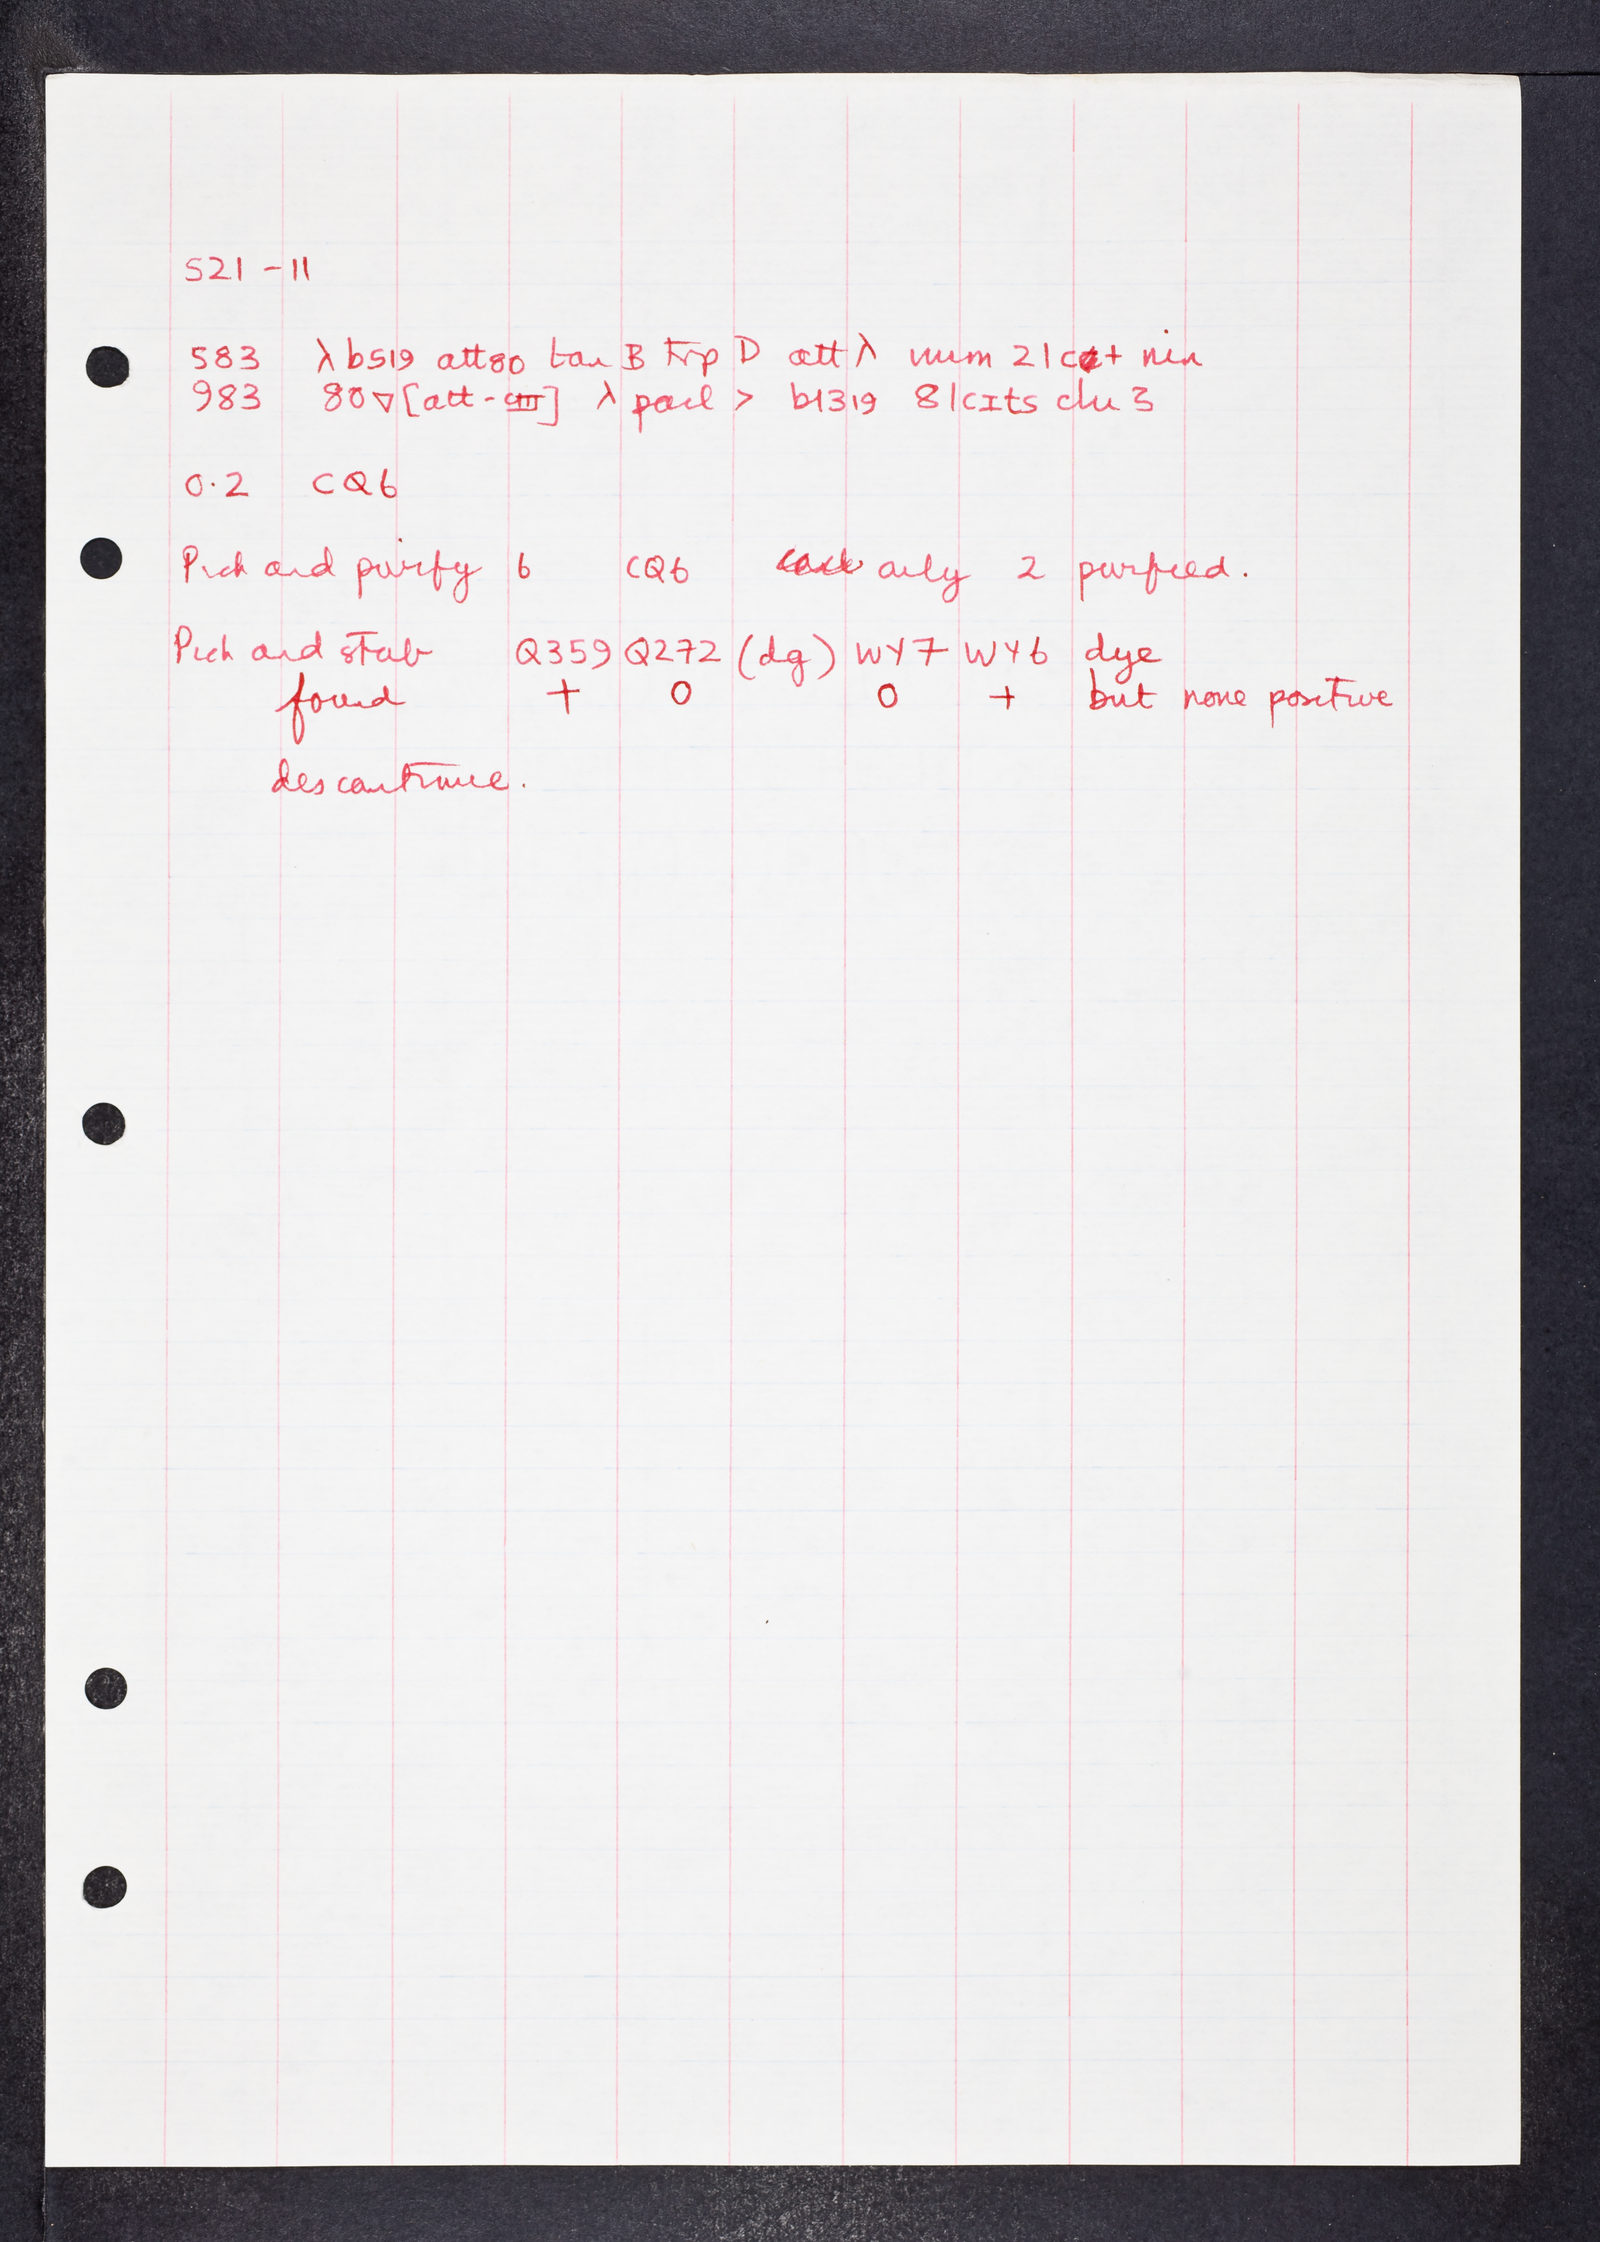 S21 - 11
583 λ b519 att80 ton B trp D att λ imm 21 c+ nin
983 80∇[att-cIII] λ pael > b1319 8/cIts chi 3
0.2 CQ6
Pick and purify 6 CQ6 only 2 purified.
Pick and stab Q359 Q272 (dg) WY7 WY6 dye
found + 0 0 + but none positive
descontinue.